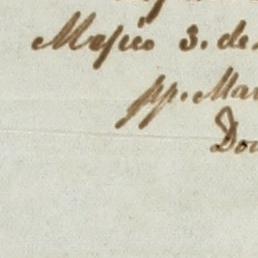 Mexico 3. de
pp. Mar
Do